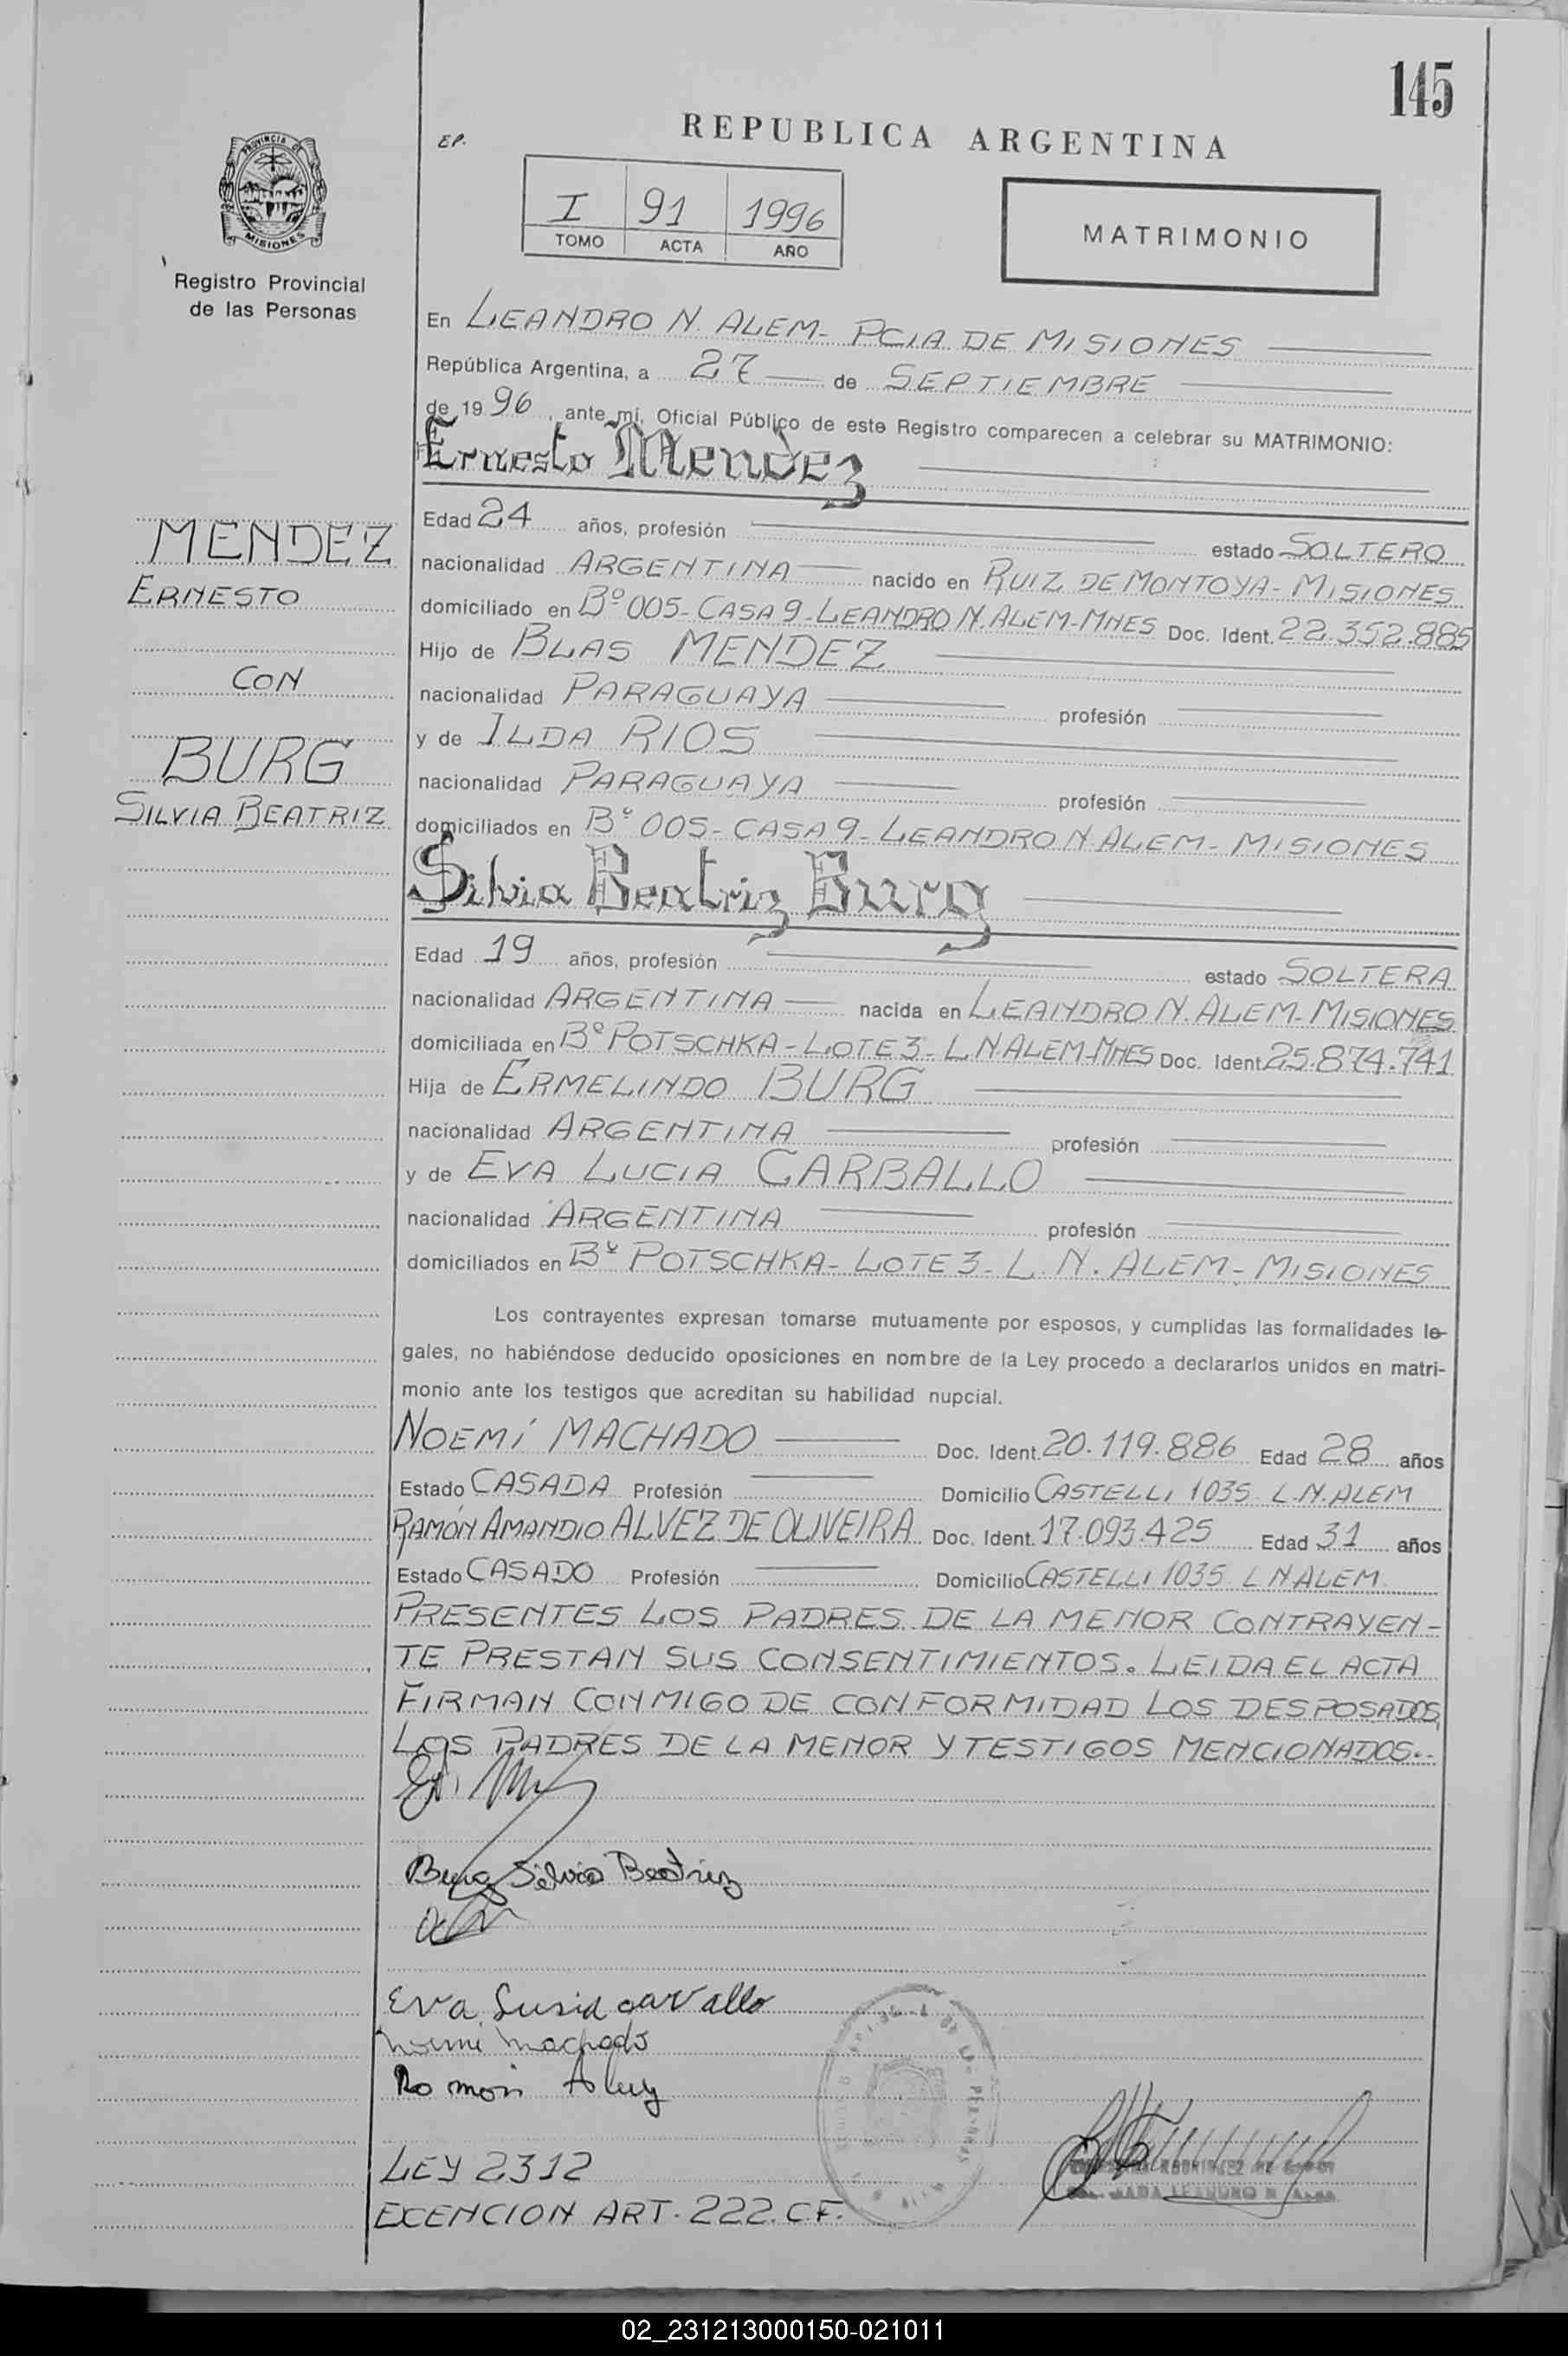 145
REPUBLICA ARGENTINA
EP.
PROVINCIA DE
MISIONES
Registro Provincial
de las Personas
I 91 1996
TOMO ACTA AÑO
MATRIMONIO
En LEANDRO N. ALEM- PCIA DE MISIONES
República Argentina, a 27 de SEPTIEMBRE
de 1996, ante mí, Oficial Público de este Registro comparecen a celebrar su MATRIMONIO:
Ernesto Mendez
Edad 24 años, profesión estado SOLTERO
nacionalidad ARGENTINA nacido en RUIZ DE MONTOYA- MISIONES
domiciliado en Bº 005- CASA 9- LEANDRO N. ALEM-MNES Doc. Ident. 22.352.885
Hijo de BLAS MENDEZ
nacionalidad PARAGUAYA profesión
y de ILDA RIOS
nacionalidad PARAGUAYA profesión
domiciliados en Bº 005- CASA 9- LEANDRO N ALEM- MISIONES
MENDEZ
ERNESTO
CON
BURG
SILVIA BEATRIZ
Silvia Beatriz Burg
Edad 19 años, profesión estado SOLTERA
nacionalidad ARGENTINA nacida en LEANDRO N. ALEM- MISIONES
domiciliada en Bº POTSCHKA- LOTE 3- L N ALEM-MNES Doc. Ident. 25.874.741
Hija de ERMELINDO BURG
nacionalidad ARGENTINA profesión
y de EVA LUCIA CARBALLO
nacionalidad ARGENTINA profesión
domiciliados en Bº POTSCHKA- LOTE 3- L. N. ALEM- MISIONES
Los contrayentes expresan tomarse mutuamente por esposos, y cumplidas las formalidades le-
gales, no habiéndose deducido oposiciones en nombre de la Ley procedo a declararlos unidos en matri-
monio ante los testigos que acreditan su habilidad nupcial.
NOEMÍ MACHADO Doc. Ident. 20.119.886 Edad 28 años
Estado CASADA Profesión Domicilio CASTELLI 1035 L.N.ALEM
RAMÓN AMANDIO ALVEZ DE OLIVEIRA Doc. Ident. 17.093.425 Edad 31 años
Estado CASADO Profesión Domicilio CASTELLI 1035 L N ALEM
PRESENTES LOS PADRES DE LA MENOR CONTRAYEN-
TE PRESTAN SUS CONSENTIMIENTOS. LEIDA EL ACTA
FIRMAN CONMIGO DE CONFORMIDAD LOS DESPOSADOS,
LOS PADRES DE LA MENOR Y TESTIGOS MENCIONADOS.-
Burg Silvia Beatriz
Eva Lusia carvallo
Noemi Machado
Ramon
LEY 2312
EXENCION ART. 222. C.F.
02_231213000150-021011